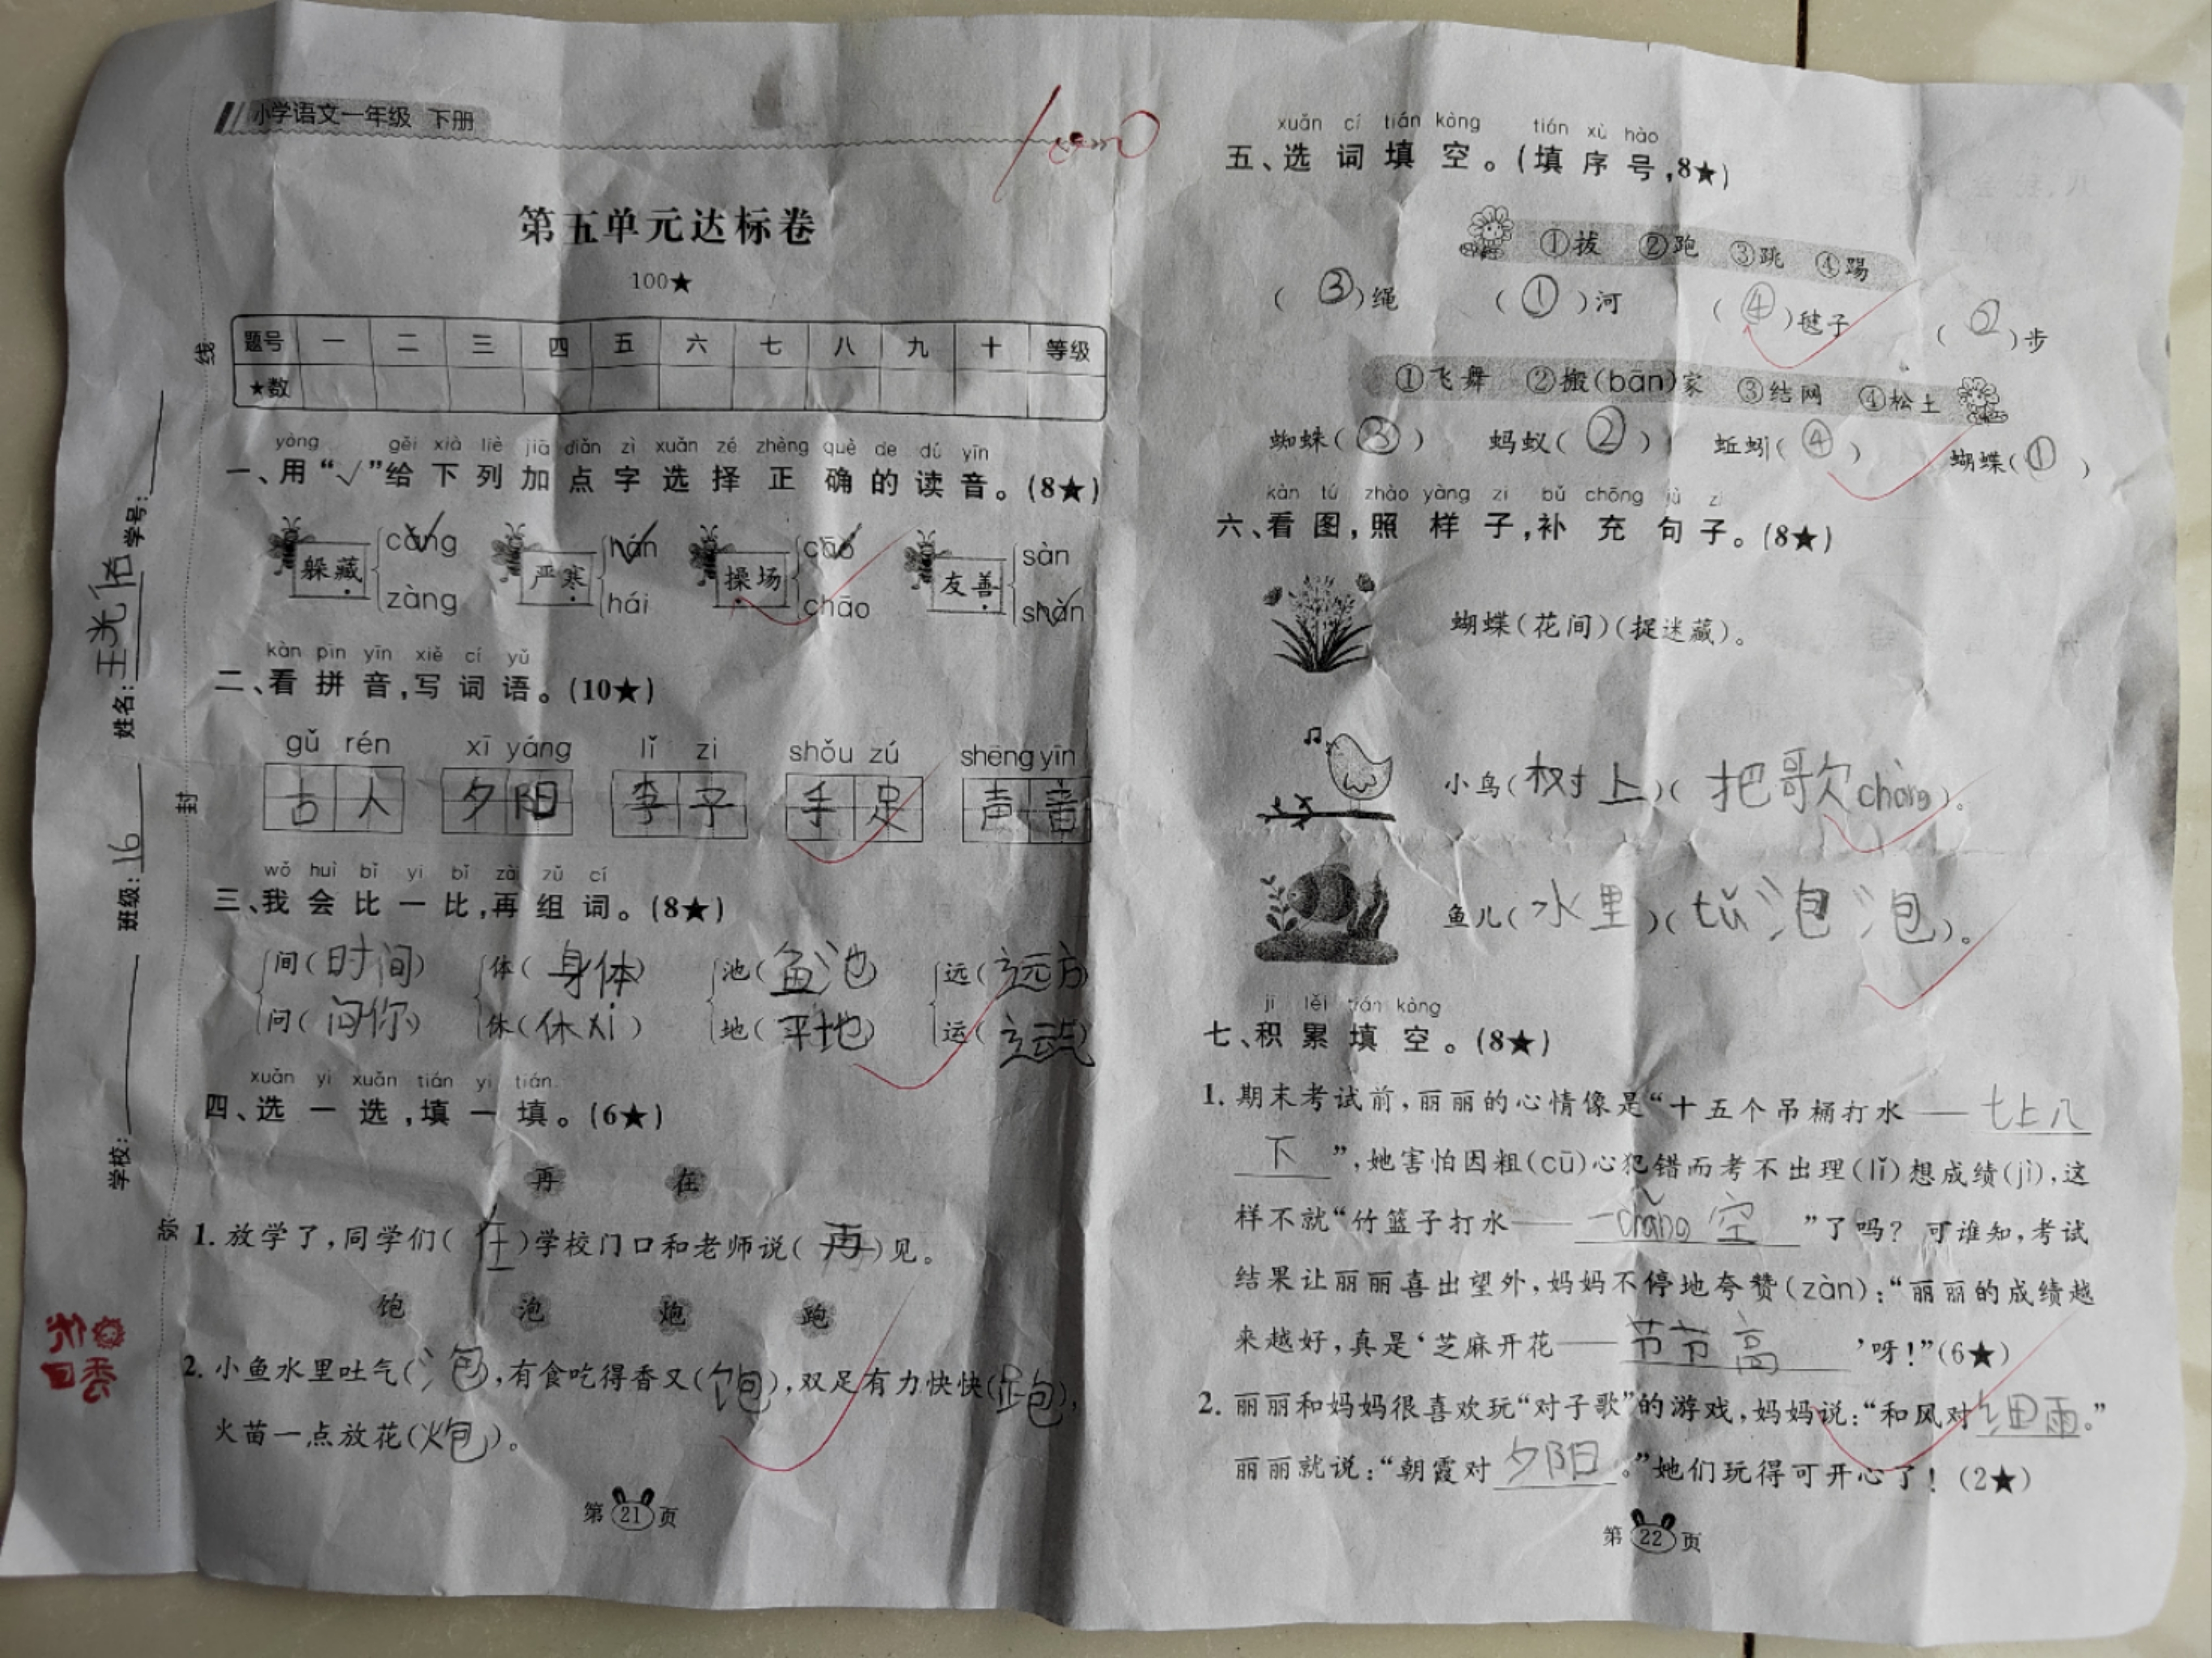 小学语文一年级 下册
100
第五单元达标卷
100★
题号 一 二 三 四 五 六 七 八 九 十 等级
★数
yòng gěi xià liè jiā diǎn zì xuǎn zé zhèng què de dú yīn
一、用“√”给下列加点字选择正确的读音。(8★)
躲藏 cáng zàng 严寒 hán hái 操场 cāo chāo 友善 sàn shàn
kàn pīn yīn xiě cí yǔ
二、看拼音,写词语。(10★)
gǔ rén xī yáng lǐ zi shǒu zú shēng yīn
古人 夕阳 李子 手足 声音
wǒ huì bǐ yi bǐ zài zǔ cí
三、我会比一比,再组词。(8★)
间(时间) 体(身体) 池(鱼池) 远(远方)
问(问你) 休(休xi) 地(平地) 运(运动)
xuǎn yi xuǎn tián yi tián
四、选一选,填一填。(6★)
再 在
1. 放学了,同学们(在)学校门口和老师说(再)见。
饱 泡 炮 跑
2. 小鱼水里吐气(泡),有食吃得香又(饱),双足有力快快(跑),
火苗一点放花(炮)。
第21页
学校: 班级:16 姓名:王光佑 学号:
线
封
密
xuǎn cí tián kòng tián xù hào
五、选词填空。(填序号,8★)
①拔 ②跑 ③跳 ④踢
(③)绳 (①)河 (④)毽子 (②)步
①飞舞 ②搬(bān)家 ③结网 ④松土
蜘蛛(③) 蚂蚁(②) 蚯蚓(④) 蝴蝶(①)
kàn tú zhào yàng zi bǔ chōng jù zi
六、看图,照样子,补充句子。(8★)
蝴蝶(花间)(捉迷藏)。
小鸟(树上)(把歌chàng)。
鱼儿(水里)(tǔ泡泡)。
jī lěi tián kòng
七、积累填空。(8★)
1. 期末考试前,丽丽的心情像是“十五个吊桶打水——七上八
下”,她害怕因粗(cū)心犯错而考不出理(lǐ)想成绩(jì),这
样不就“竹篮子打水——一chǎng空”了吗? 可谁知,考试
结果让丽丽喜出望外,妈妈不停地夸赞(zàn):“丽丽的成绩越
来越好,真是‘芝麻开花——节节高’呀!”(6★)
2. 丽丽和妈妈很喜欢玩“对子歌”的游戏,妈妈说:“和风对细雨。”
丽丽就说:“朝霞对夕阳。”她们玩得可开心了! (2★)
第22页